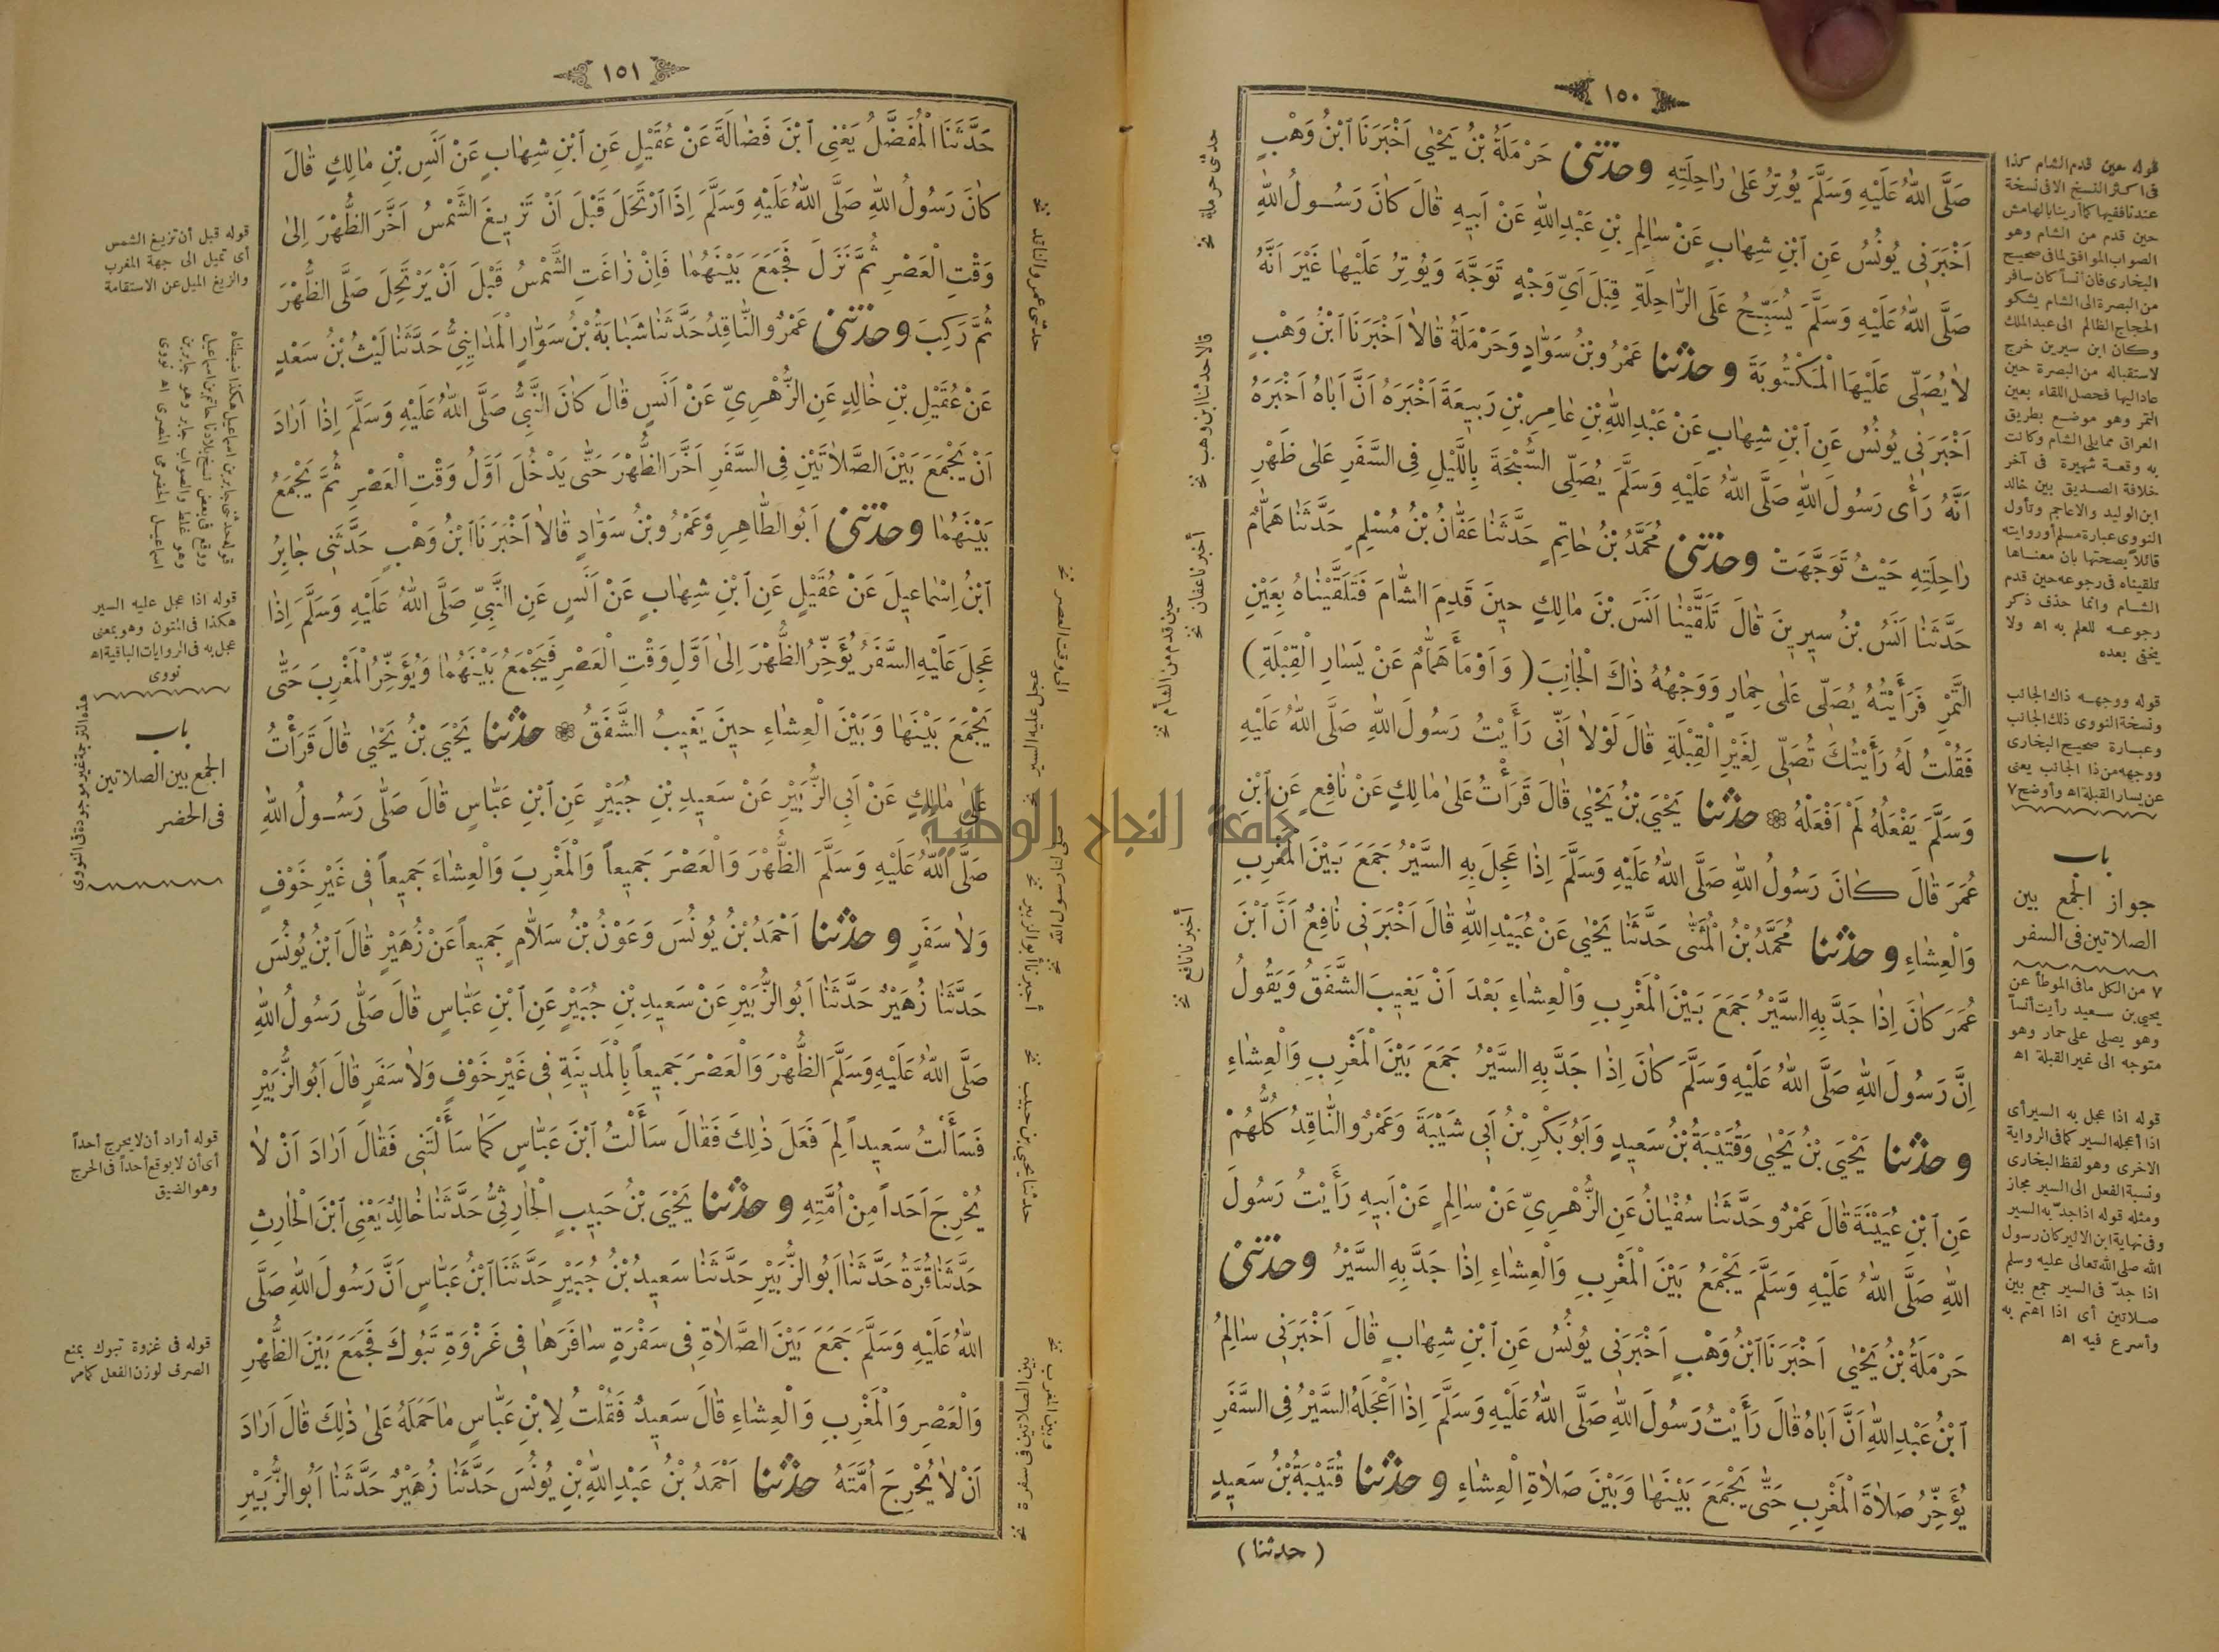 ١٥٠
صَلَّى اللهُ عَلَيْهِ وَسَلَّمَ يُوتِرُ عَلىٰ رٰاحِلَتِهِ وحدثنى حَرْمَلَةُ بْنُ يَحْيٰى اَخْبَرَنَا ابْنُ وَهْبٍ
اَخْبَرَنِى يُونُسُ عَنِ ابْنِ شِهٰابٍ عَنْ سٰالِمِ بْنِ عَبْدِاللهِ عَنْ اَبِيهِ قٰالَ كٰانَ رَسُولُ اللهِ
صَلَّى اللهُ عَلَيْهِ وَسَلَّمَ يُسَبِّحُ عَلَى الرّٰاحِلَةِ قِبَلَ اَىِّ وَجْهٍ تَوَجَّهَ وَيُوتِرُ عَلَيْهٰا غَيْرَ اَنَّهُ
لاٰيُصَلِّى عَلَيْهَا الْمَكْتُوبَةَ وحدثنا عَمْرُو بْنُ سَوّٰادٍ وَحَرْمَلَةُ قٰالاٰ اَخْبَرَنَا ابْنُ وَهْبٍ
اَخْبَرَنِى يُونُسُ عَنِ ابْنِ شِهٰابٍ عَنْ عَبْدِاللهِ بْنِ عٰامِرِ بْنِ رَبِيعَةَ اَخْبَرَهُ اَنَّ اَبٰاهُ اَخْبَرَهُ
اَنَّهُ رَأٰى رَسُولَ اللهِ صَلَّى اللهُ عَلَيْهِ وَسَلَّمَ يُصَلِّى السُّبْحَةَ بِاللَّيْلِ فِى السَّفَرِ عَلىٰ ظَهْرِ
رٰاحِلَتِهِ حَيْثُ تَوَجَّهَتْ وحدثنى مُحَمَّدُ بْنُ حٰاتِمٍ حَدَّثَنٰا عَفّٰانُ بْنُ مُسْلِمٍ حَدَّثَنٰا هَمّٰامٌ
حَدَّثَنٰا اَنَسُ بْنُ سِيرِينَ قٰالَ تَلَقَّيْنٰا اَنَسَ بْنَ مٰالِكٍ حِينَ قَدِمَ الشّٰامَ فَتَلَقَّيْنٰاهُ بِعَيْنِ
التَّمْرِ فَرَأَيْتُهُ يُصَلِّى عَلىٰ حِمٰارٍ وَوَجْهُهُ ذٰاكَ الْجٰانِبَ (وَاَوْمَأَ هَمّٰامٌ عَنْ يَسٰارِ الْقِبْلَةِ)
فَقُلْتُ لَهُ رَأَيْتُكَ تُصَلِّى لِغَيْرِ الْقِبْلَةِ قٰالَ لَوْلاٰ اَنِّى رَأَيْتُ رَسُولَ اللهِ صَلَّى اللهُ عَلَيْهِ
وَسَلَّمَ يَفْعَلُهُ لَمْ اَفْعَلْهُ ❁ حدثنا يَحْيَى بْنُ يَحْيٰى قٰالَ قَرَأْتُ عَلىٰ مٰالِكٍ عَنْ نٰافِعٍ عَنِ ابْنِ
عُمَرَ قٰالَ كٰانَ رَسُولُ اللهِ صَلَّى اللهُ عَلَيْهِ وَسَلَّمَ اِذٰا عَجِلَ بِهِ السَّيْرُ جَمَعَ بَيْنَ الْمَغْرِبِ
وَالْعِشٰاءِ وحدثنا مُحَمَّدُ بْنُ الْمُثَنّٰى حَدَّثَنٰا يَحْيٰى عَنْ عُبَيْدِاللهِ قٰالَ اَخْبَرَنِى نٰافِعٌ اَنَّ ابْنَ
عُمَرَ كٰانَ اِذٰا جَدَّ بِهِ السَّيْرُ جَمَعَ بَيْنَ الْمَغْرِبِ وَالْعِشٰاءِ بَعْدَ اَنْ يَغِيبَ الشَّفَقُ وَيَقُولُ
اِنَّ رَسُولَ اللهِ صَلَّى اللهُ عَلَيْهِ وَسَلَّمَ كٰانَ اِذٰا جَدَّ بِهِ السَّيْرُ جَمَعَ بَيْنَ الْمَغْرِبِ وَالْعِشٰاءِ
وحدثنا يَحْيَى بْنُ يَحْيٰى وَقُتَيْبَةُ بْنُ سَعِيدٍ وَاَبُوبَكْرِ بْنُ اَبِى شَيْبَةَ وَعَمْرٌو النّٰاقِدُ كُلُّهُمْ
عَنِ ابْنِ عُيَيْنَةَ قٰالَ عَمْرٌو حَدَّثَنٰا سُفْيٰانُ عَنِ الزُّهْرِىِّ عَنْ سٰالِمٍ عَنْ اَبِيهِ رَأَيْتُ رَسُولَ
اللهِ صَلَّى اللهُ عَلَيْهِ وَسَلَّمَ يَجْمَعُ بَيْنَ الْمَغْرِبِ وَالْعِشٰاءِ اِذٰا جَدَّ بِهِ السَّيْرُ وحدثنى
حَرْمَلَةُ بْنُ يَحْيٰى اَخْبَرَنَا ابْنُ وَهْبٍ اَخْبَرَنِى يُونُسُ عَنِ ابْنِ شِهٰابٍ قٰالَ اَخْبَرَنِى سٰالِمُ
ابْنُ عَبْدِاللهِ اَنَّ اَبٰاهُ قٰالَ رَأَيْتُ رَسُولَ اللهِ صَلَّى اللهُ عَلَيْهِ وَسَلَّمَ اِذٰا اَعْجَلَهُ السَّيْرُ فِى السَّفَرِ
يُؤَخِّرُ صَلاٰةَ الْمَغْرِبِ حَتّٰى يَجْمَعَ بَيْنَهٰا وَبَيْنَ صَلاٰةِ الْعِشٰاءِ وحدثنا قُتَيْبَةُ بْنُ سَعِيدٍ
(حدثنا)
قوله حين قدم الشام كذا
فى اكثر النسخ الا فى نسخة
عندنا ففيها كما أرينا بالهامش
حين قدم من الشام وهو
الصواب الموافق لما فى صحيح
البخارى فان أنساً كان سافر
من البصرة الى الشام يشكو
الحجاج الظالم الى عبد الملك
وكان ابن سيرين خرج
لاستقباله من البصرة حين
عاد اليها فحصل اللقاء بعين
التمر وهو موضع بطريق
العراق مما يلى الشام وكانت
به وقعة شهيرة فى آخر
خلافة الصديق بين خالد
ابن الوليد والاعاجم وتأول
النووى عبارة مسلم أو روايته
قائلاً بصحتها بان معناها
تلقيناه فى رجوعه حين قدم
الشام وانما حذف ذكر
رجوعه للعلم به اه ولا
يخفى بعده
قوله ووجهه ذاك الجانب
ونسخة النووى ذلك الجانب
وعبارة صحيح البخارى
ووجهه من ذا الجانب يعنى
عن يسار القبلة اه وأوضح ٧
باب
جواز الجمع بين
الصلاتين فى السفر
٧ من الكل ما فى الموطأ عن
يحيى بن سعيد رأيت أنساً
وهو يصلى على حمار وهو
متوجه الى غير القبلة اه
قوله اذا عجل به السير أى
اذا أعجله السير كما فى الرواية
الاخرى وهو لفظ البخارى
ونسبة الفعل الى السير مجاز
ومثله قوله اذا جدّ به السير
وفى نهاية ابن الاثير كان رسول
الله صلى الله تعالى عليه وسلم
اذا جدّ فى السير جمع بين
صلاتين أى اذا اهتم به
وأسرع فيه اه
حدثنى حرملة نخ
قالا حدثنا ابن وهب نخ
أخبرنا عفان نخ
حين قدم من الشأم نخ
أخبرنا نافع نخ
١٥١
حَدَّثَنَا الْمُفَضَّلُ يَعْنِى ابْنَ فَضٰالَةَ عَنْ عُقَيْلٍ عَنِ ابْنِ شِهٰابٍ عَنْ اَنَسِ بْنِ مٰالِكٍ قٰالَ
كٰانَ رَسُولُ اللهِ صَلَّى اللهُ عَلَيْهِ وَسَلَّمَ اِذَا ارْتَحَلَ قَبْلَ اَنْ تَزِيغَ الشَّمْسُ اَخَّرَ الظُّهْرَ اِلىٰ
وَقْتِ الْعَصْرِ ثُمَّ نَزَلَ فَجَمَعَ بَيْنَهُمٰا فَاِنْ زٰاغَتِ الشَّمْسُ قَبْلَ اَنْ يَرْتَحِلَ صَلَّى الظُّهْرَ
ثُمَّ رَكِبَ وحدثنى عَمْرٌو النّٰاقِدُ حَدَّثَنٰا شَبٰابَةُ بْنُ سَوّٰارٍ الْمَدٰايِنِىُّ حَدَّثَنٰا لَيْثُ بْنُ سَعْدٍ
عَنْ عُقَيْلِ بْنِ خٰالِدٍ عَنِ الزُّهْرِىِّ عَنْ اَنَسٍ قٰالَ كٰانَ النَّبِىُّ صَلَّى اللهُ عَلَيْهِ وَسَلَّمَ اِذٰا اَرٰادَ
اَنْ يَجْمَعَ بَيْنَ الصَّلاٰتَيْنِ فِى السَّفَرِ اَخَّرَ الظُّهْرَ حَتّٰى يَدْخُلَ اَوَّلُ وَقْتِ الْعَصْرِ ثُمَّ يَجْمَعُ
بَيْنَهُمٰا وحدثنى اَبُو الطّٰاهِرِ وَعَمْرُو بْنُ سَوّٰادٍ قٰالاٰ اَخْبَرَنَا ابْنُ وَهْبٍ حَدَّثَنِى جٰابِرُ
ابْنُ اِسْمٰاعِيلَ عَنْ عُقَيْلٍ عَنِ ابْنِ شِهٰابٍ عَنْ اَنَسٍ عَنِ النَّبِىِّ صَلَّى اللهُ عَلَيْهِ وَسَلَّمَ اِذٰا
عَجِلَ عَلَيْهِ السَّفَرُ يُؤَخِّرُ الظُّهْرَ اِلىٰ اَوَّلِ وَقْتِ الْعَصْرِ فَيَجْمَعُ بَيْنَهُمٰا وَيُؤَخِّرُ الْمَغْرِبَ حَتّٰى
يَجْمَعَ بَيْنَهٰا وَبَيْنَ الْعِشٰاءِ حِينَ يَغِيبُ الشَّفَقُ ❁ حدثنا يَحْيَى بْنُ يَحْيٰى قٰالَ قَرَأْتُ
عَلىٰ مٰالِكٍ عَنْ اَبِى الزُّبَيْرِ عَنْ سَعِيدِ بْنِ جُبَيْرٍ عَنِ ابْنِ عَبّٰاسٍ قٰالَ صَلّٰى رَسُولُ اللهِ
صَلَّى اللهُ عَلَيْهِ وَسَلَّمَ الظُّهْرَ وَالْعَصْرَ جَمِيعاً وَالْمَغْرِبَ وَالْعِشٰاءَ جَمِيعاً فِى غَيْرِ خَوْفٍ
وَلاٰ سَفَرٍ وحدثنا اَحْمَدُ بْنُ يُونُسَ وَعَوْنُ بْنُ سَلاّٰمٍ جَمِيعاً عَنْ زُهَيْرٍ قٰالَ ابْنُ يُونُسَ
حَدَّثَنٰا زُهَيْرٌ حَدَّثَنٰا اَبُو الزُّبَيْرِ عَنْ سَعِيدِ بْنِ جُبَيْرٍ عَنِ ابْنِ عَبّٰاسٍ قٰالَ صَلّٰى رَسُولُ اللهِ
صَلَّى اللهُ عَلَيْهِ وَسَلَّمَ الظُّهْرَ وَالْعَصْرَ جَمِيعاً بِالْمَدِينَةِ فِى غَيْرِ خَوْفٍ وَلاٰ سَفَرٍ قٰالَ اَبُو الزُّبَيْرِ
فَسَأَلْتُ سَعِيداً لِمَ فَعَلَ ذٰلِكَ فَقٰالَ سَأَلْتُ ابْنَ عَبّٰاسٍ كَمٰا سَأَلْتَنِى فَقٰالَ اَرٰادَ اَنْ لاٰ
يُحْرِجَ اَحَداً مِنْ اُمَّتِهِ وحدثنا يَحْيَى بْنُ حَبِيبٍ الْحٰارِثِىُّ حَدَّثَنٰا خٰالِدٌ يَعْنِى ابْنَ الْحٰارِثِ
حَدَّثَنٰا قُرَّةُ حَدَّثَنٰا اَبُو الزُّبَيْرِ حَدَّثَنٰا سَعِيدُ بْنُ جُبَيْرٍ حَدَّثَنَا ابْنُ عَبّٰاسٍ اَنَّ رَسُولَ اللهِ صَلَّى
اللهُ عَلَيْهِ وَسَلَّمَ جَمَعَ بَيْنَ الصَّلاٰةِ فِى سَفْرَةٍ سٰافَرَهٰا فِى غَزْوَةِ تَبُوكَ فَجَمَعَ بَيْنَ الظُّهْرِ
وَالْعَصْرِ وَالْمَغْرِبِ وَالْعِشٰاءِ قٰالَ سَعِيدٌ فَقُلْتُ لِابْنِ عَبّٰاسٍ مٰا حَمَلَهُ عَلىٰ ذٰلِكَ قٰالَ اَرٰادَ
اَنْ لاٰ يُحْرِجَ اُمَّتَهُ حدثنا اَحْمَدُ بْنُ عَبْدِاللهِ بْنِ يُونُسَ حَدَّثَنٰا زُهَيْرٌ حَدَّثَنٰا اَبُو الزُّبَيْرِ
حدثنى عمرو الناقد نخ
الى وقت العصر نخ
عجل عليه السير نخ
أخبرنا أبو الزبير نخ
حدثنا يحيى بن حبيب نخ
بين الصلاتين فى سفرة نخ
وبين المغرب نخ
قوله قبل أن تزيغ الشمس
أى تميل الى جهة المغرب
والزيغ الميل عن الاستقامة
قوله حدثنى جابر بن اسماعيل هكذا ضبطناه
ووقع فى بعض نسخ بلادنا حاتم بن اسماعيل
وهو غلط والصواب جابر وهو جابر بن
اسماعيل الحضرمى المصرى اه نووى
قوله اذا عجل عليه السير
هكذا فى المتون وهو بمعنى
عجل به فى الروايات الباقية اه
نووى
باب
الجمع بين الصلاتين
فى الحضر
هذه الترجمة غير موجودة فى النووى
قوله أراد أن لا يحرج أحداً
أى أن لا يوقع أحداً فى الحرج
وهو الضيق
قوله فى غزوة تبوك بمنع
الصرف لوزن الفعل كما مر
جامعة النجاح الوطنية